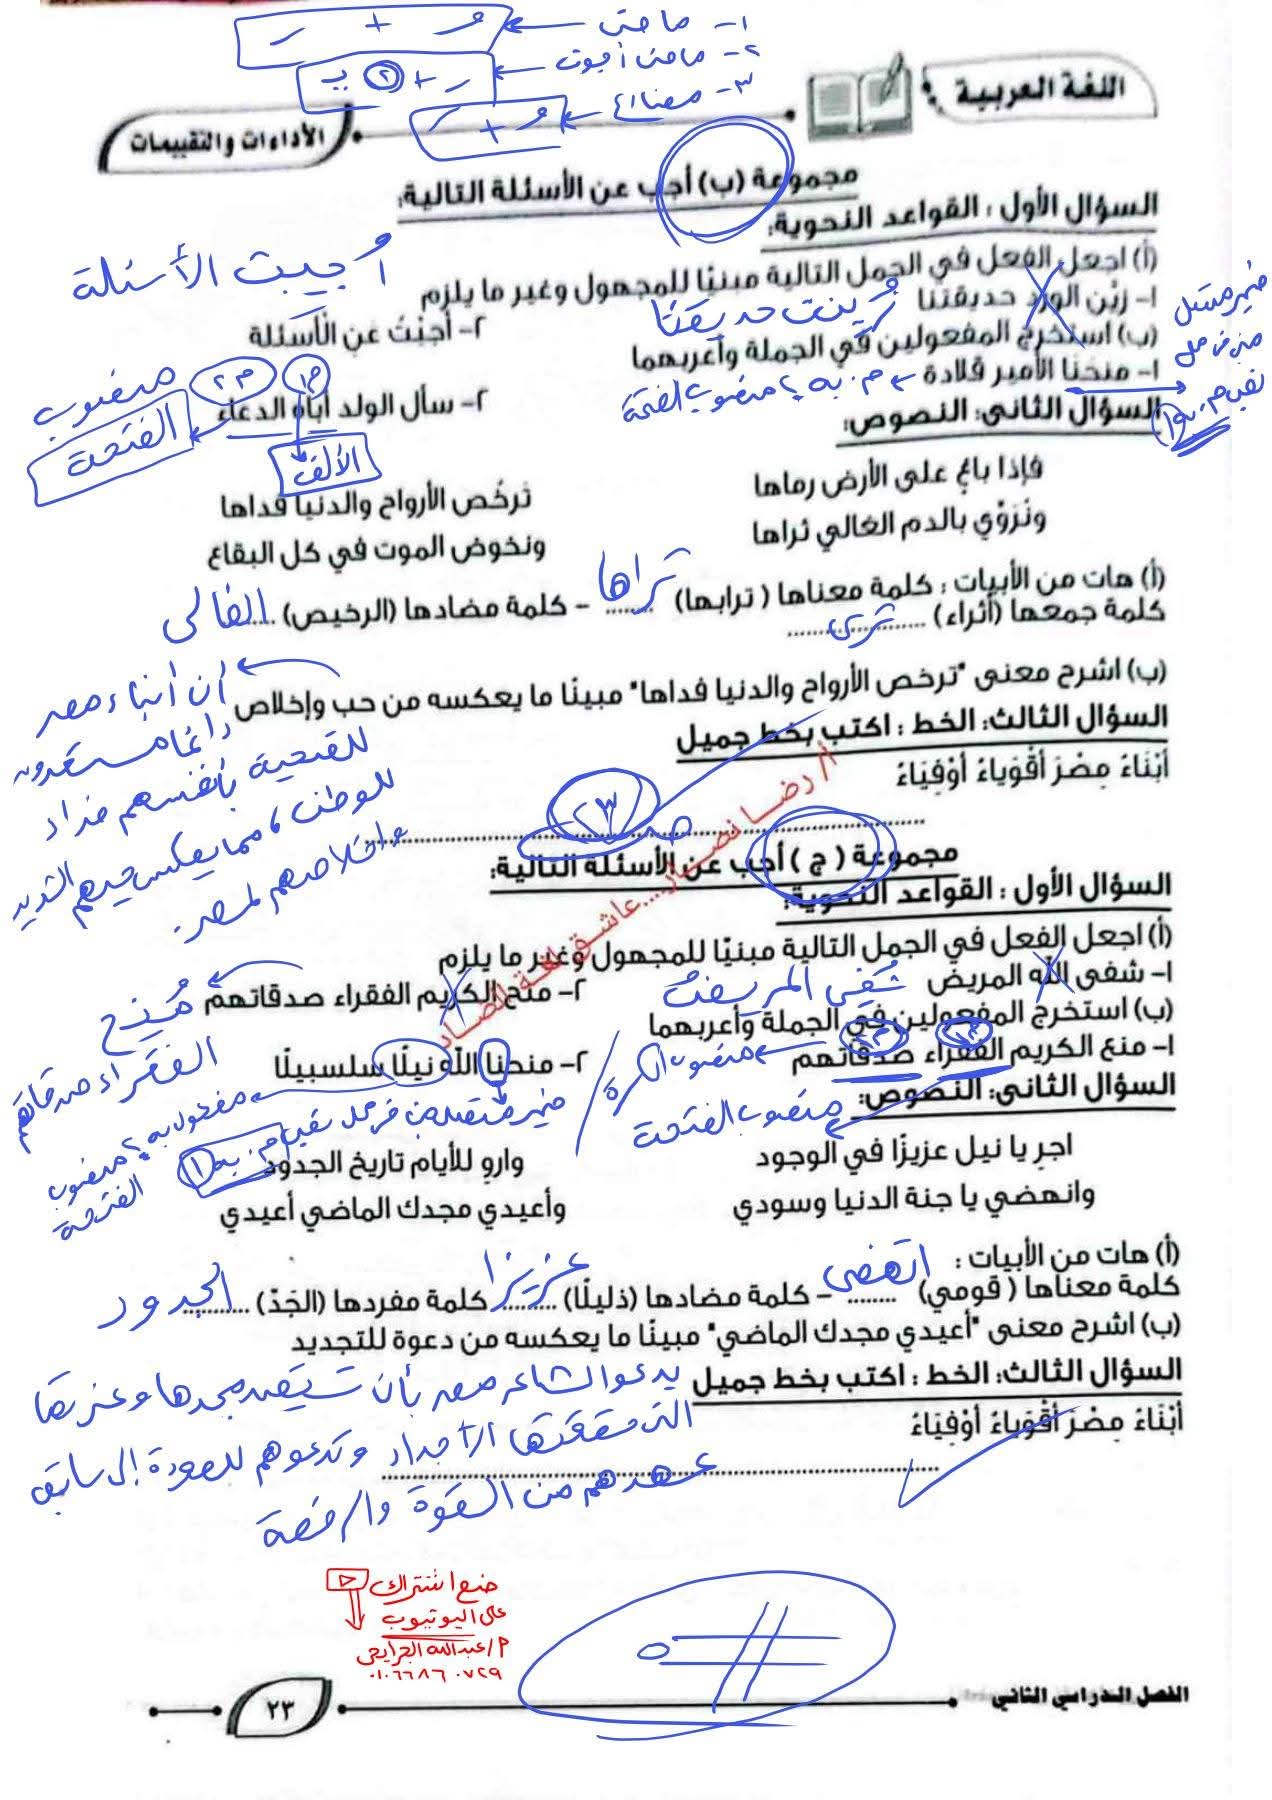 ١- ماضي ← ــُ + ــِ
٢- ماضى أجوف ← ــِ + (٢) ي
٣- مضارع ← ــُ + ــَ
اللغة العربية
الأداءات والتقييمات
مجموعة (ب) أجب عن الأسئلة التالية:
السؤال الأول : القواعد النحوية:
(أ) اجعل الفعل في الجمل التالية مبنيًا للمجهول وغير ما يلزم
أُجيبت الأسئلة
١- زيّن الورد حديقتنا
زُينت حديقتنا
٢- أجبْتُ عَنِ الْأسئلة
(ب) استخرج المفعولين في الجملة وأعربهما
١- منحَنا الأمير قلادة
م. به ٢ منصوب الفتحة
ضمير متصل
مبنى فى محل
نصب م. به ١
٢- سأل الولد أباه الدعاء
م١ م٢ منصوب
الفتحة
الألف
السؤال الثاني: النصوص:
فإذا باغٍ على الأرض رماها
تَرخُص الأرواح والدنيا فداها
ونُرَوّي بالدم الغالي ثراها
ونخوض الموت في كل البقاع
(أ) هات من الأبيات : كلمة معناها ( ترابها) ...... ثراها – كلمة مضادها (الرخيص) ...... الغالى
كلمة جمعها (أثراء) ...... ثرى
(ب) اشرح معنى "ترخص الأرواح والدنيا فداها" مبينًا ما يعكسه من حب وإخلاص
أن أبناء مصر
دائما مستعدون
للتضحية بأنفسهم فداء
للوطن، مما يعكس حبهم الشديد
وإخلاصهم لمصر.
السؤال الثالث: الخط : اكتب بخط جميل
أبْنَاءُ مِصْرَ أقْوِيَاءُ أوْفِيَاءُ
ص ٢٣
أ/ رضا نصار....عاشق لغة الضاد
مجموعة ( ج ) أجب عن الأسئلة التالية:
السؤال الأول : القواعد النحوية:
(أ) اجعل الفعل في الجمل التالية مبنيًا للمجهول وغير ما يلزم
١- شفى الله المريض
شُفِي المريضُ
٢- منح الكريم الفقراء صدقاتهم
مُنِح
الفقراء صدقاتهم
(ب) استخرج المفعولين في الجملة وأعربهما
١- منع الكريم الفقراء صدقاتهم
م١ م٢ منصوب الكسرة
منصوب الفتحة
٢- منحنا الله نيلًا سلسبيلًا
ضمير متصل مبنى فى محل نصب م. به ١
مفعول به ٢ منصوب
الفتحة
السؤال الثاني: النصوص:
اجرِ يا نيل عزيزًا في الوجود
واروِ للأيام تاريخ الجدود
وانهضي يا جنة الدنيا وسودي
وأعيدي مجدك الماضي أعيدي
(أ) هات من الأبيات :
كلمة معناها ( قومي) ...... انهضى – كلمة مضادها (ذليلًا) ...... عزيزا كلمة مفردها (الجَدّ) ...... الجدود
(ب) اشرح معنى "أعيدي مجدك الماضي" مبينًا ما يعكسه من دعوة للتجديد
يدعو الشاعر مصر بأن تستعيد مجدها وعزتها
التى حققتها الأجداد وتدعوهم للعودة إلى سابق
عهدهم من القوة والرفعة
السؤال الثالث: الخط : اكتب بخط جميل
أبْنَاءُ مِصْرَ أقْوِيَاءُ أوْفِيَاءُ
ضع اشتراك
على اليوتيوب
م/ عبدالله الجرايحى
٠١٠٦٦٨٦٠٧٢٩
الفصل الدراسي الثاني
٢٣